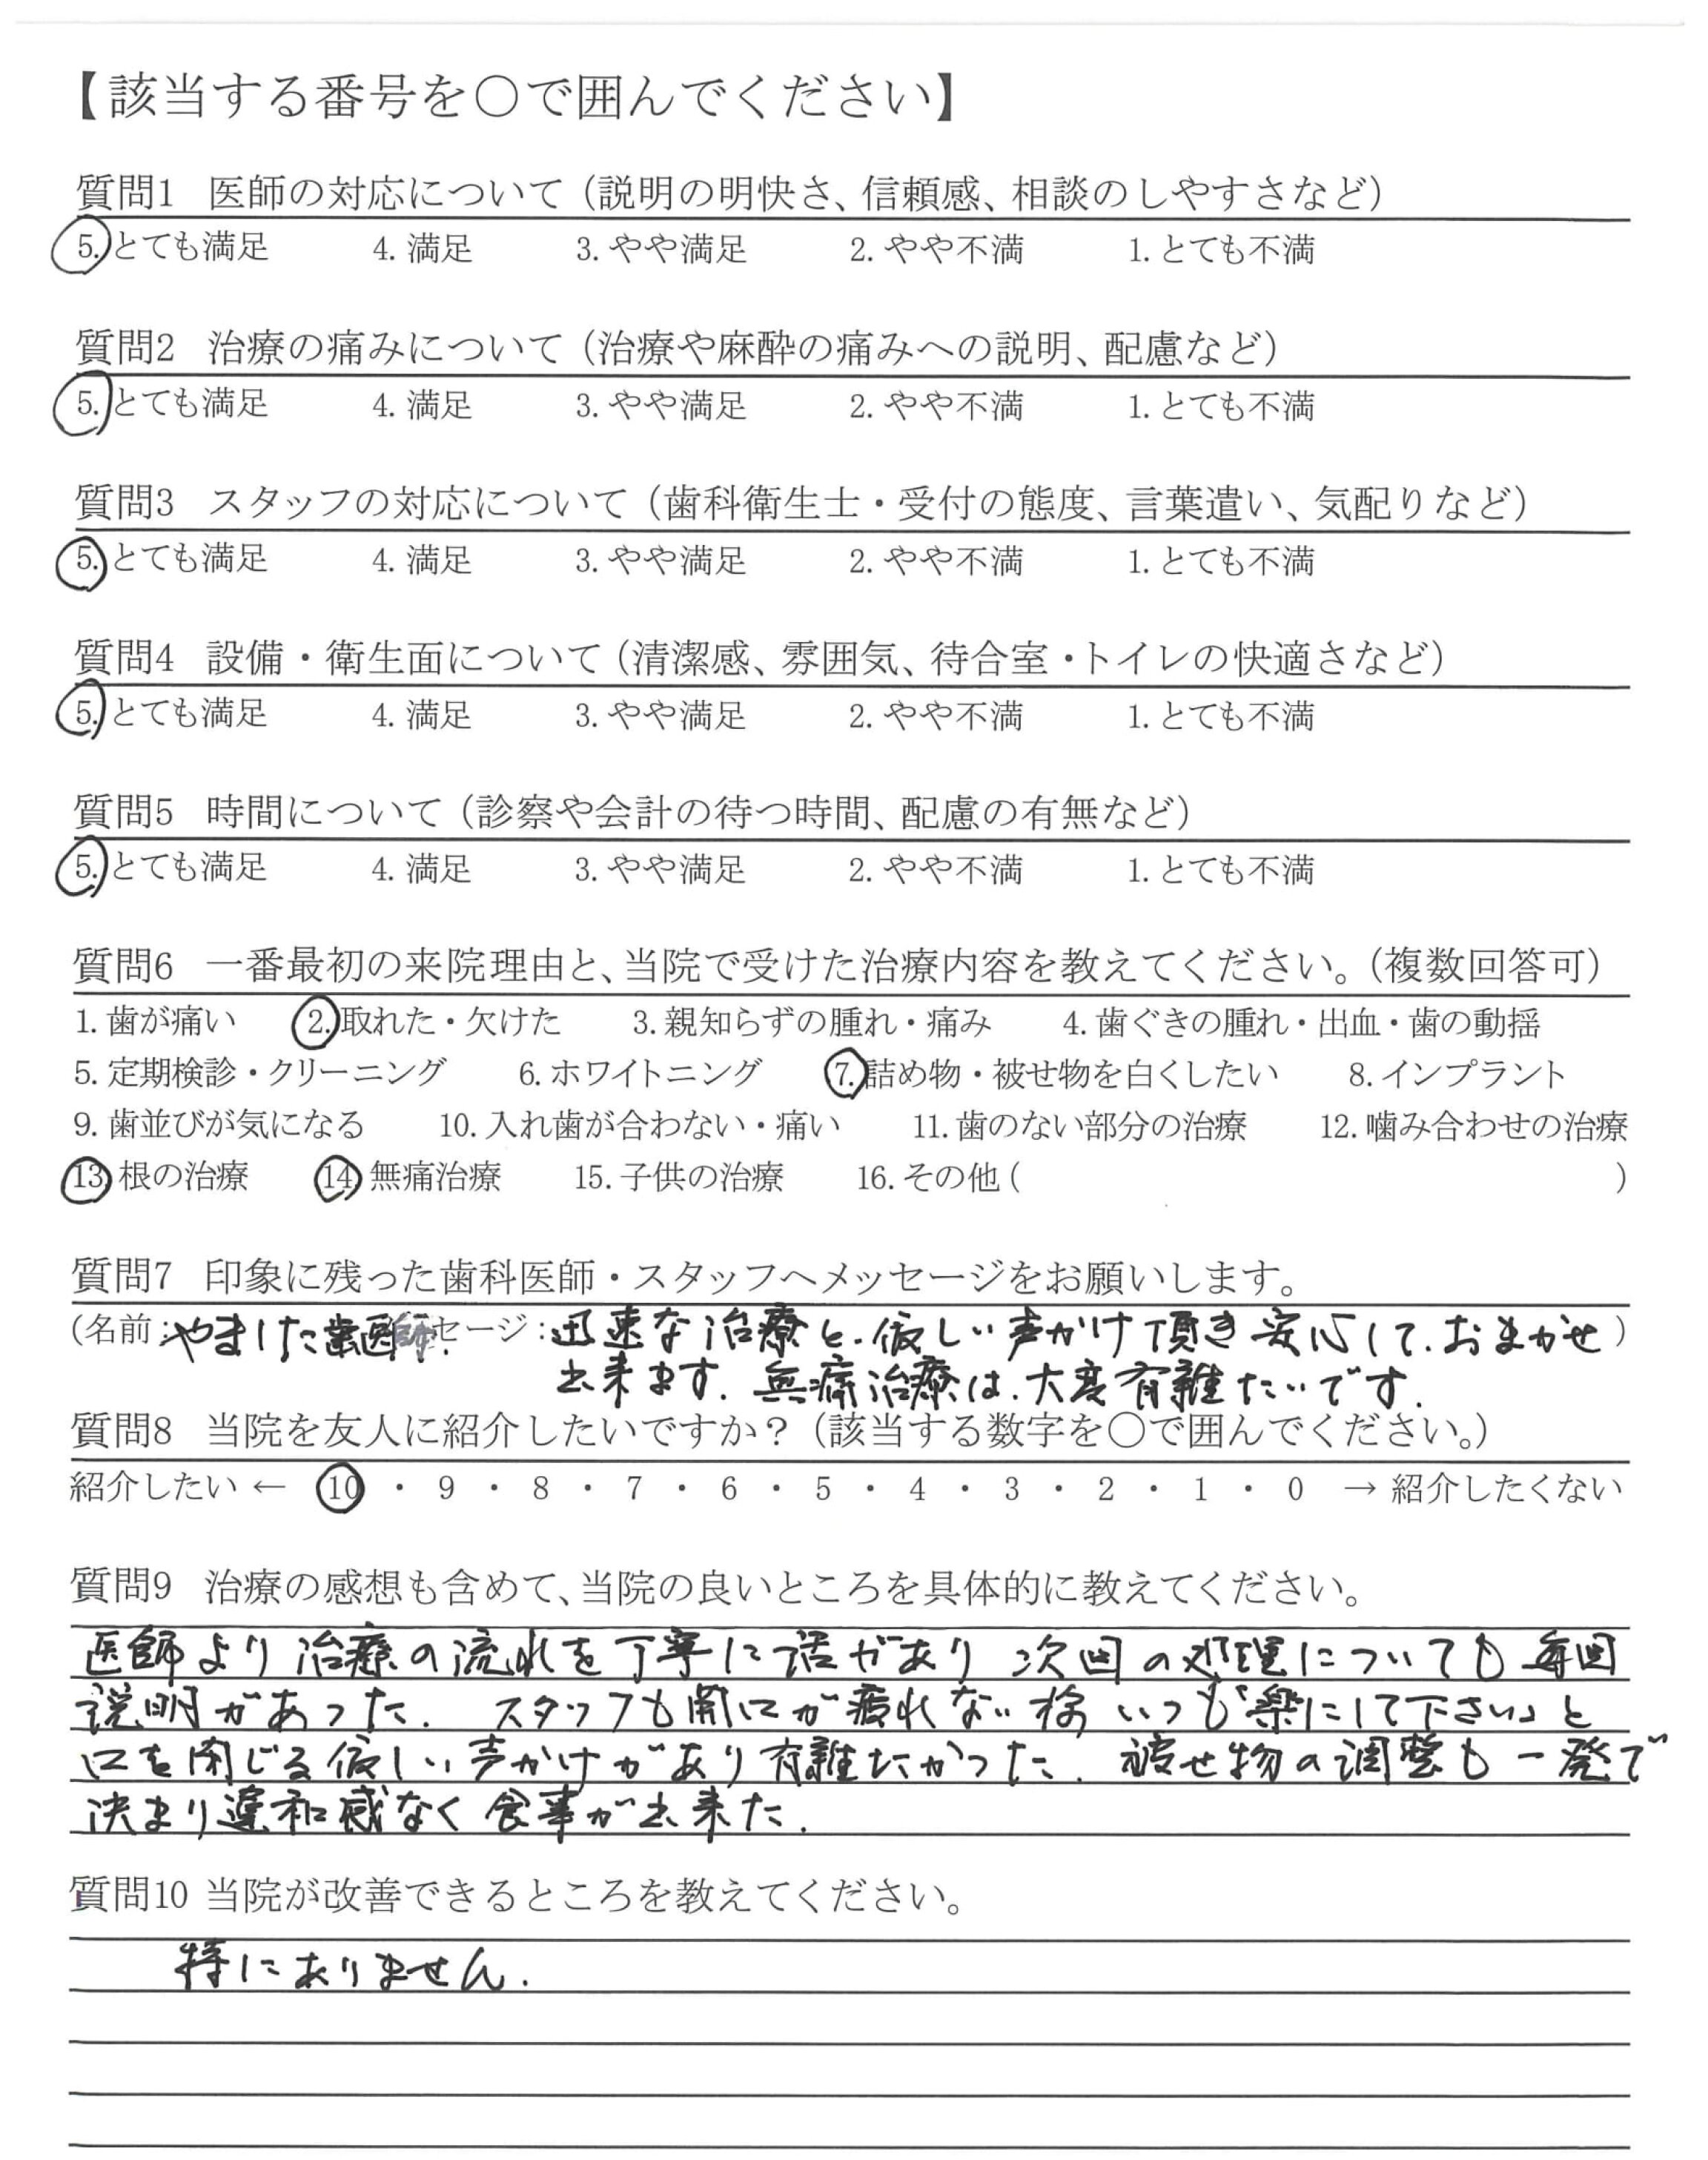 【該当する番号を○で囲んでください】
質問1 医師の対応について（説明の明快さ、信頼感、相談のしやすさなど）
5. とても満足 4. 満足 3. やや満足 2. やや不満 1. とても不満
質問2 治療の痛みについて（治療や麻酔の痛みへの説明、配慮など）
5. とても満足 4. 満足 3. やや満足 2. やや不満 1. とても不満
質問3 スタッフの対応について（歯科衛生士・受付の態度、言葉遣い、気配りなど）
5. とても満足 4. 満足 3. やや満足 2. やや不満 1. とても不満
質問4 設備・衛生面について（清潔感、雰囲気、待合室・トイレの快適さなど）
5. とても満足 4. 満足 3. やや満足 2. やや不満 1. とても不満
質問5 時間について（診察や会計の待つ時間、配慮の有無など）
5. とても満足 4. 満足 3. やや満足 2. やや不満 1. とても不満
質問6 一番最初の来院理由と、当院で受けた治療内容を教えてください。（複数回答可）
1. 歯が痛い 2. 取れた・欠けた 3. 親知らずの腫れ・痛み 4. 歯ぐきの腫れ・出血・歯の動揺
5. 定期検診・クリーニング 6. ホワイトニング 7. 詰め物・被せ物を白くしたい 8. インプラント
9. 歯並びが気になる 10. 入れ歯が合わない・痛い 11. 歯のない部分の治療 12. 噛み合わせの治療
13. 根の治療 14. 無痛治療 15. 子供の治療 16. その他（ ）
質問7 印象に残った歯科医師・スタッフへメッセージをお願いします。
（名前：やました歯医師. セージ：迅速な治療と.優しい声かけ頂き安心して.おまかせ）
出来ます. 無痛治療は.大変有難たいです.
質問8 当院を友人に紹介したいですか？（該当する数字を○で囲んでください。）
紹介したい ← 10 ・ 9 ・ 8 ・ 7 ・ 6 ・ 5 ・ 4 ・ 3 ・ 2 ・ 1 ・ 0 → 紹介したくない
質問9 治療の感想も含めて、当院の良いところを具体的に教えてください。
医師より治療の流れを丁寧に話があり 次回の処理についても毎回
説明があった. スタッフも開口が疲れない様 いつも「楽にして下さい」と
口を閉じる優しい声かけがあり有難たかった. 被せ物の調整も一発で
決まり違和感なく食事が出来た.
質問10 当院が改善できるところを教えてください。
特にありません.